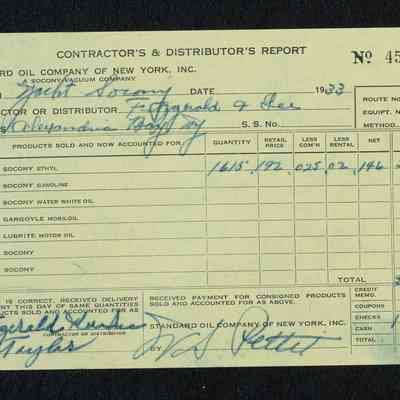 CONTRACTOR'S & DISTRIBUTOR'S REPORT Nº 45
RD OIL COMPANY OF NEW YORK, INC.
A SOCONY-VACUUM COMPANY
Yacht Socony DATE 1933
CTOR OR DISTRIBUTOR Fitzgerald & Lee
Alexandria Bay NY S. S. No.
ROUTE NO
EQUIPT. N
METHOD
PRODUCTS SOLD AND NOW ACCOUNTED FOR QUANTITY RETAIL PRICE LESS COM'N LESS ROAD NET
SOCONY ETHYL 1615 .192 .025 .02 .146
SOCONY GASOLINE
SOCONY WATER WHITE OIL
GARGOYLE MOBILOIL
LUBRITE MOTOR OIL
SOCONY
SOCONY
TOTAL
IS CORRECT. RECEIVED DELIVERY
ENT THIS DAY OF SAME QUANTITIES
DUCTS SOLD AND ACCOUNTED FOR
RECEIVED PAYMENT FOR CONSIGNED PRODUCTS
SOLD AND NOW ACCOUNTED FOR.
STANDARD OIL COMPANY OF NEW YORK, INC.
CREDIT MEMO.
COUPONS
CHECKS
CASH
TOTAL
CONTRACTOR OR DISTRIBUTOR
Taylor
BY Pettit